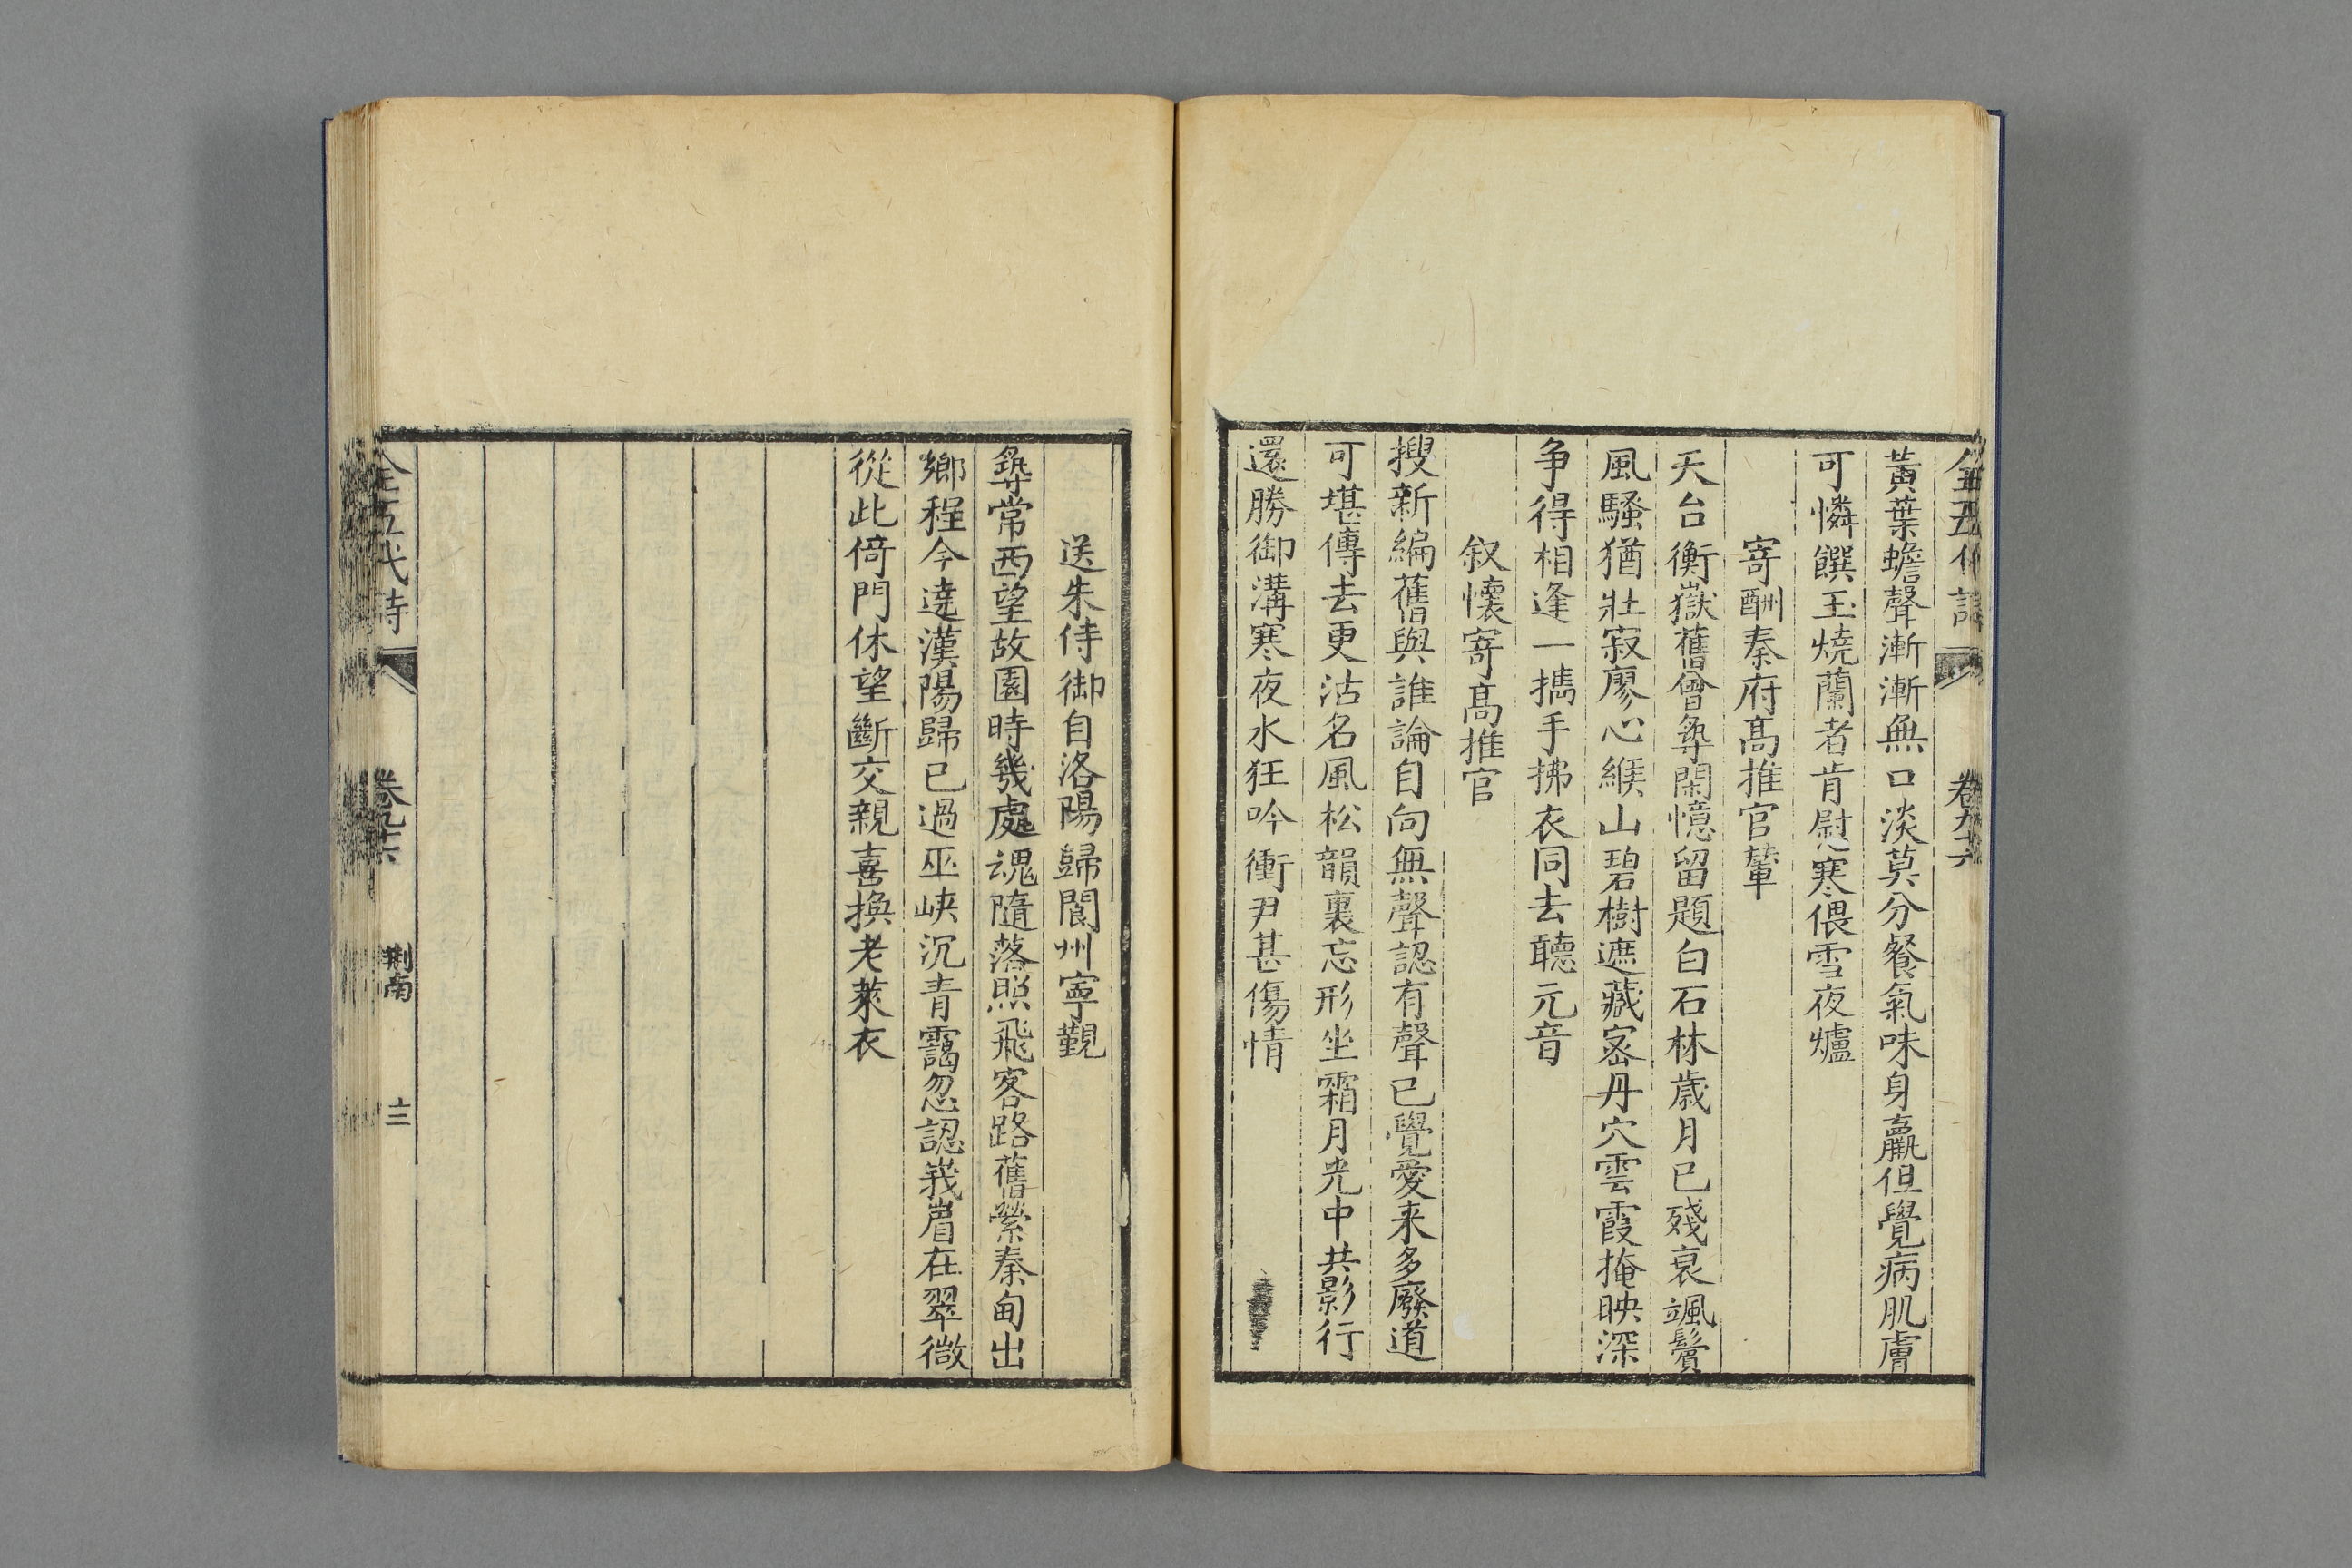 全五代詩 卷九十六
黃葉蟾聲漸漸無口淡莫分餐氣味身羸但覺病肌膚
可憐饌玉燒蘭者肯慰寒偎雪夜爐
寄酬秦府高推官輦
天台衡嶽舊曾尋閑憶留題白石林歲月已殘衰颯鬢
風騷猶壯寂寥心緱山碧樹遮藏密丹穴雲霞掩映深
争得相逢一攜手拂衣同去聽元音
叙懷寄高推官
搜新編舊與誰論自向無聲認有聲已覺愛来多廢道
可堪傳去更沽名風松韻裏忘形坐霜月光中共影行
還勝御溝寒夜水狂吟衝尹甚傷情
送朱侍御自洛陽歸閬州寧覲
尋常西望故園時幾處魂隨落照飛客路舊縈秦甸出
鄉程今遶漢陽歸已過巫峽沉青靄忽認峩嵋在翠微
從此倚門休望斷交親喜換老萊衣
全五代詩 卷九十六 荆南 十三